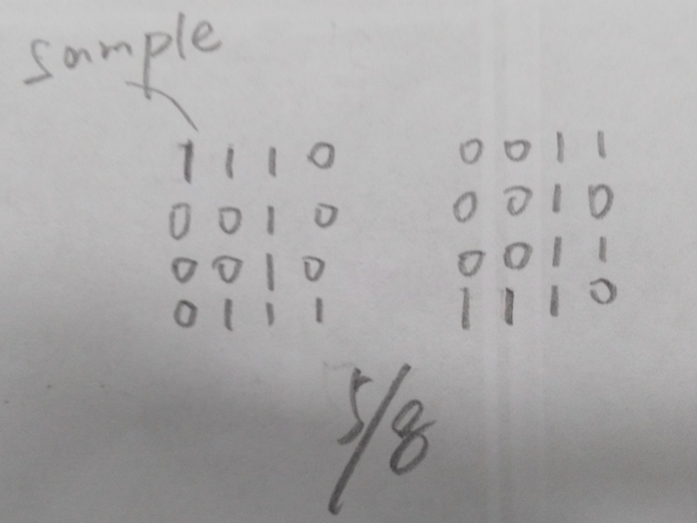 sample
1 1 1 0 0 0 1 1
0 0 1 0 0 0 1 0
0 0 1 0 0 0 1 1
0 1 1 1 1 1 1 0
5/8